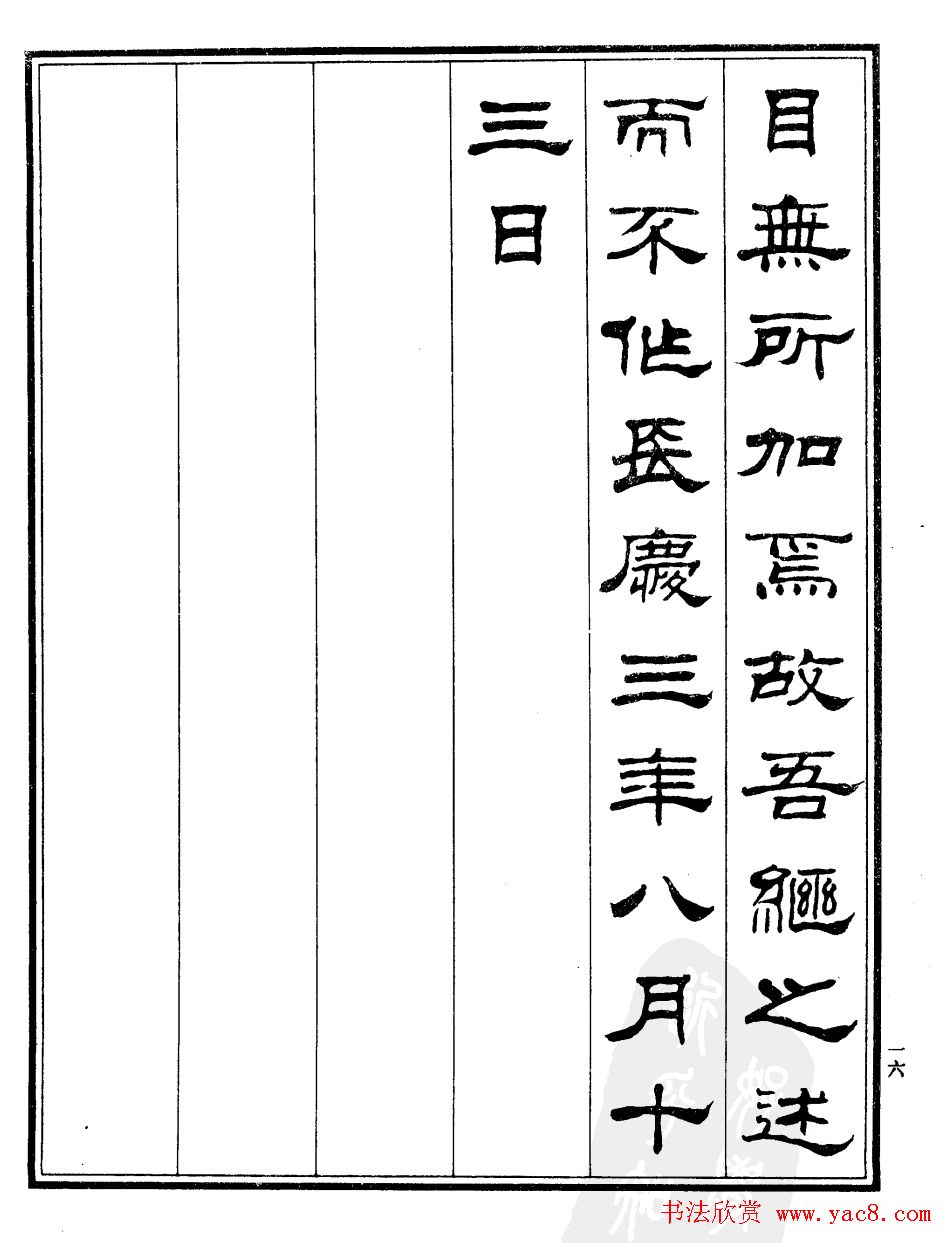 目無所加焉故吾繼之述
而不作長慶三年八月十
三日
一六
书法欣赏 www.yac8.com